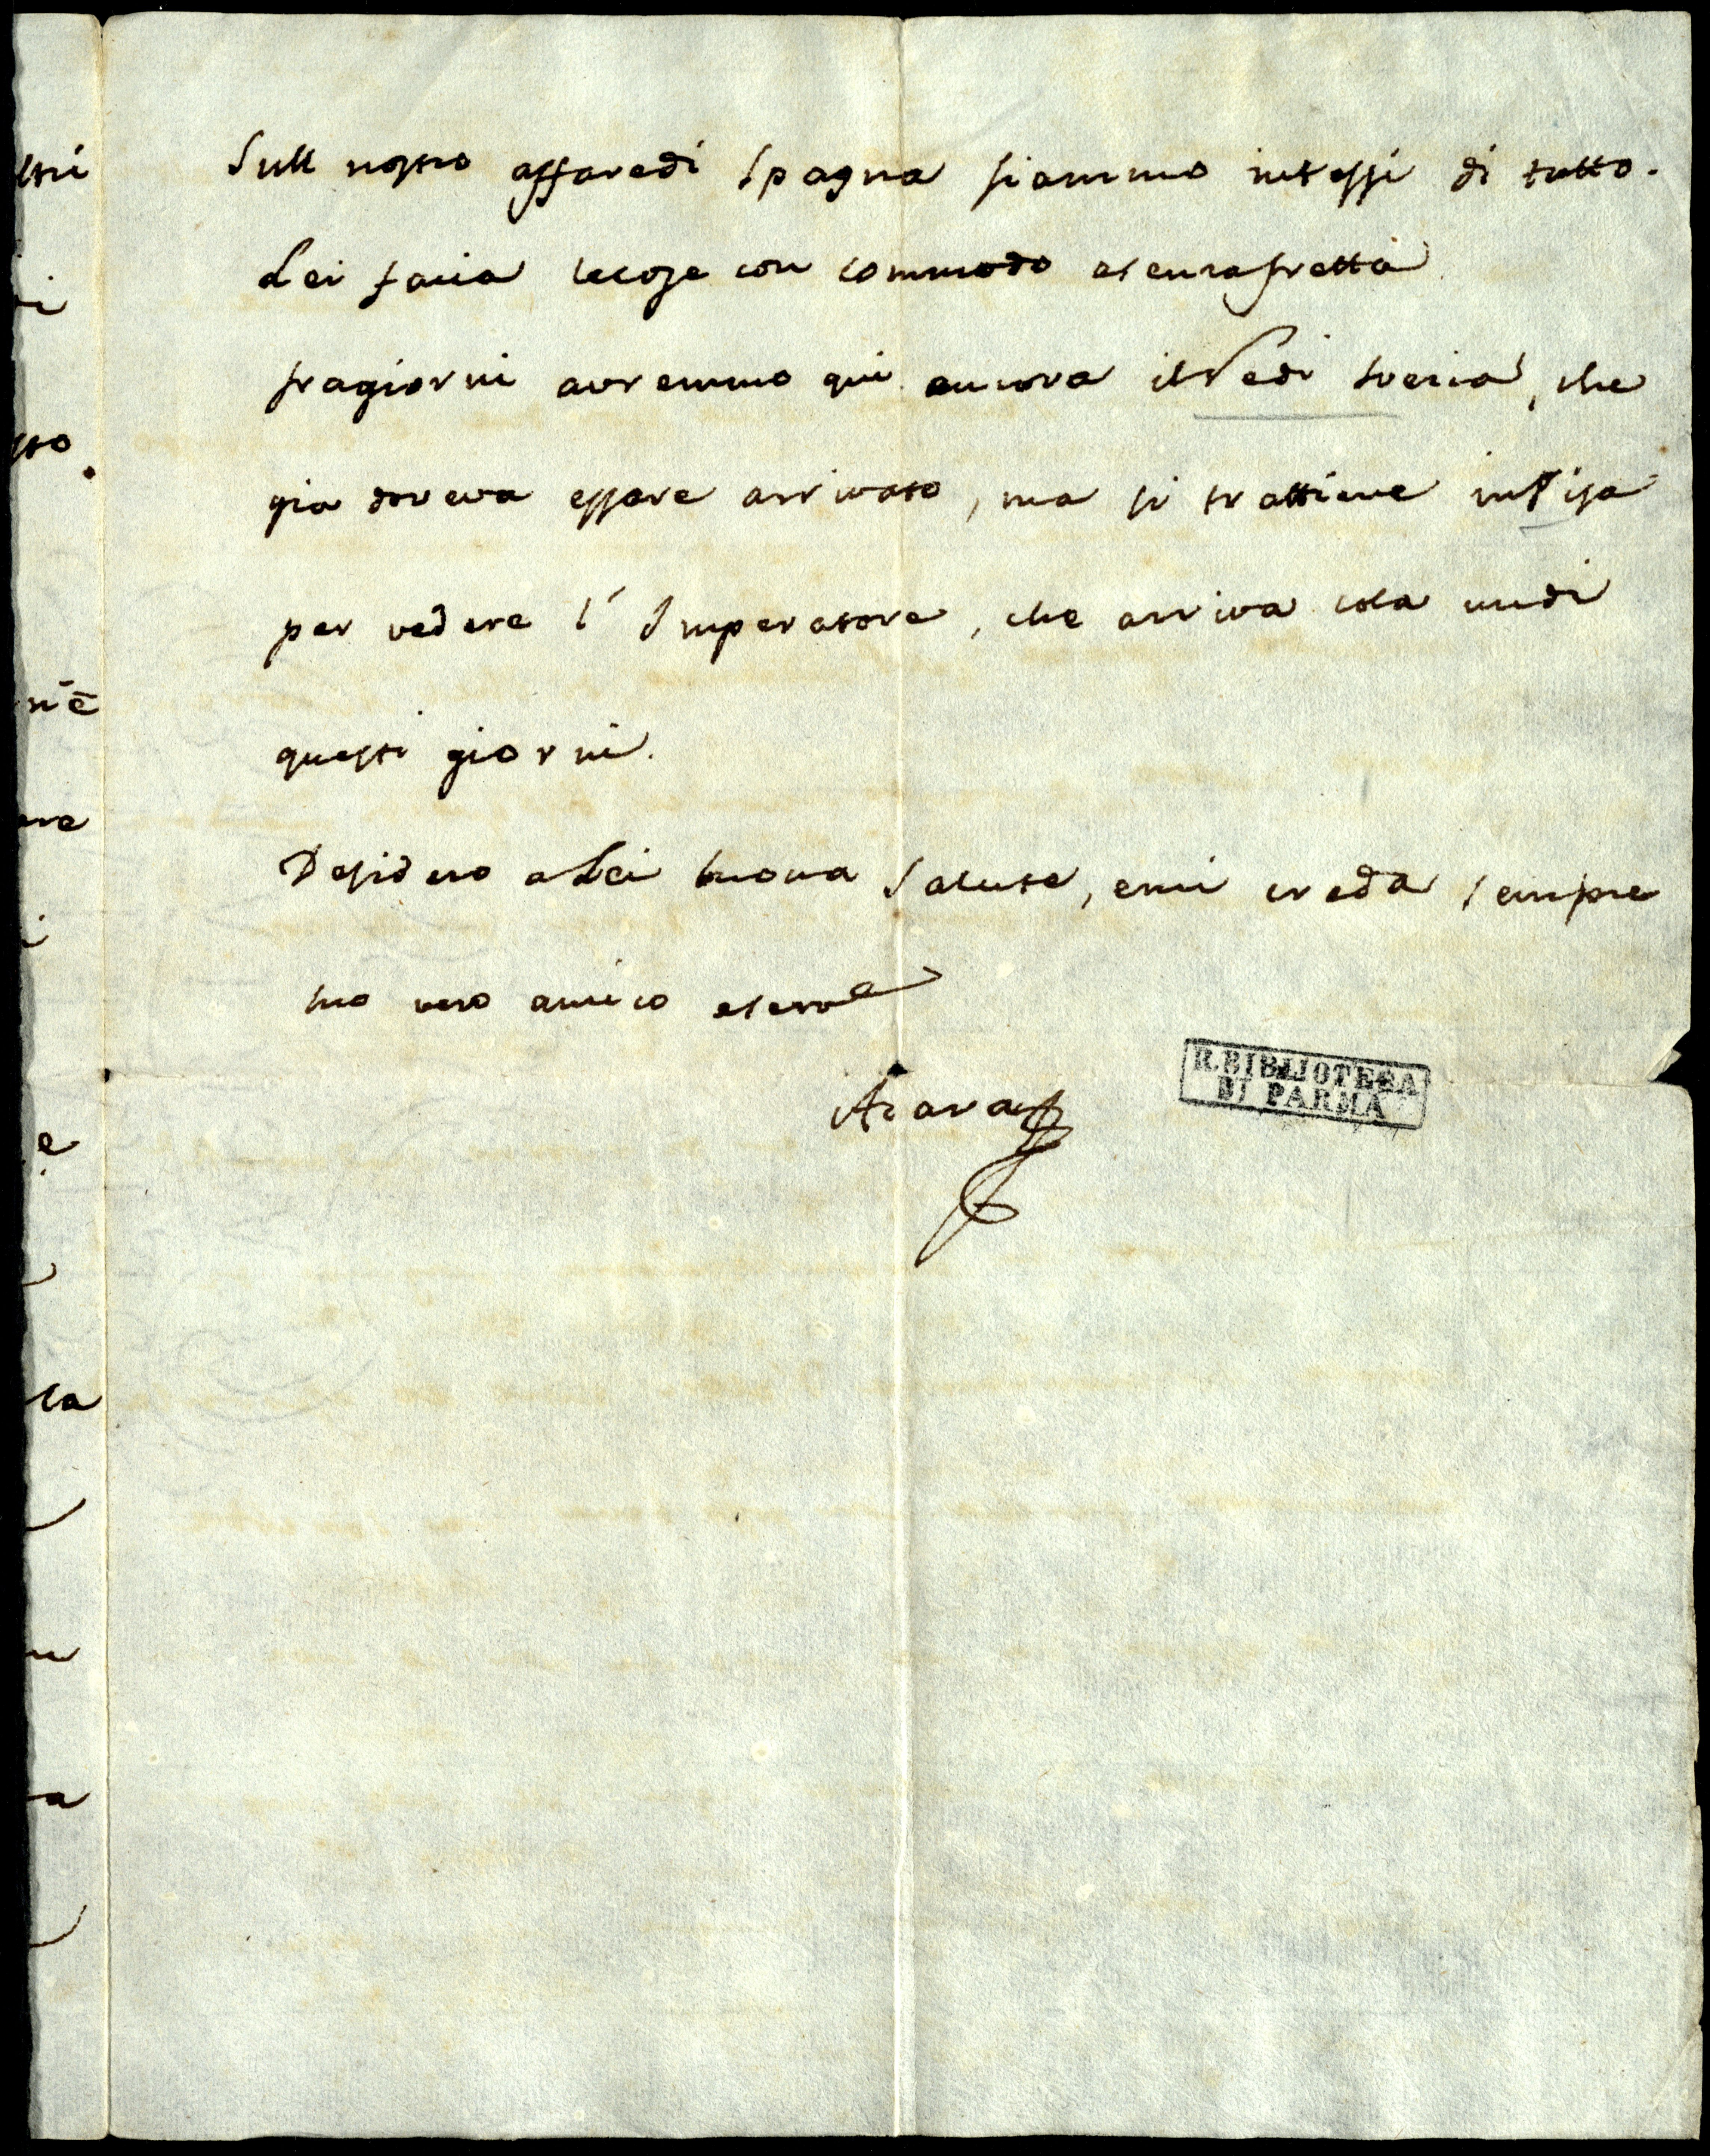 Sull nostro affaredi Spagna siammo intessi di tutto.
Lei facia lecose con commodo esenzafretta
fragiorni avremmo qui ancora ilRedi Svezia, che
gia doveva essere arrivato, ma si trattiene inPisa
per vedere l' Imperatore, che arriva cola undi
questi giorni.
Desidero aLei buona salute, emi creda sempre
suo vero amico eserve
Azara
R. BIBLIOTECA
DI PARMA
ltri
i
sso
n'è
ere
i
e
la
a